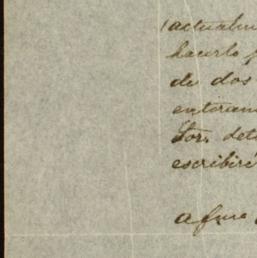 (actualm
hacerlo
de dos
entera
tor, det
escribiré
afmo